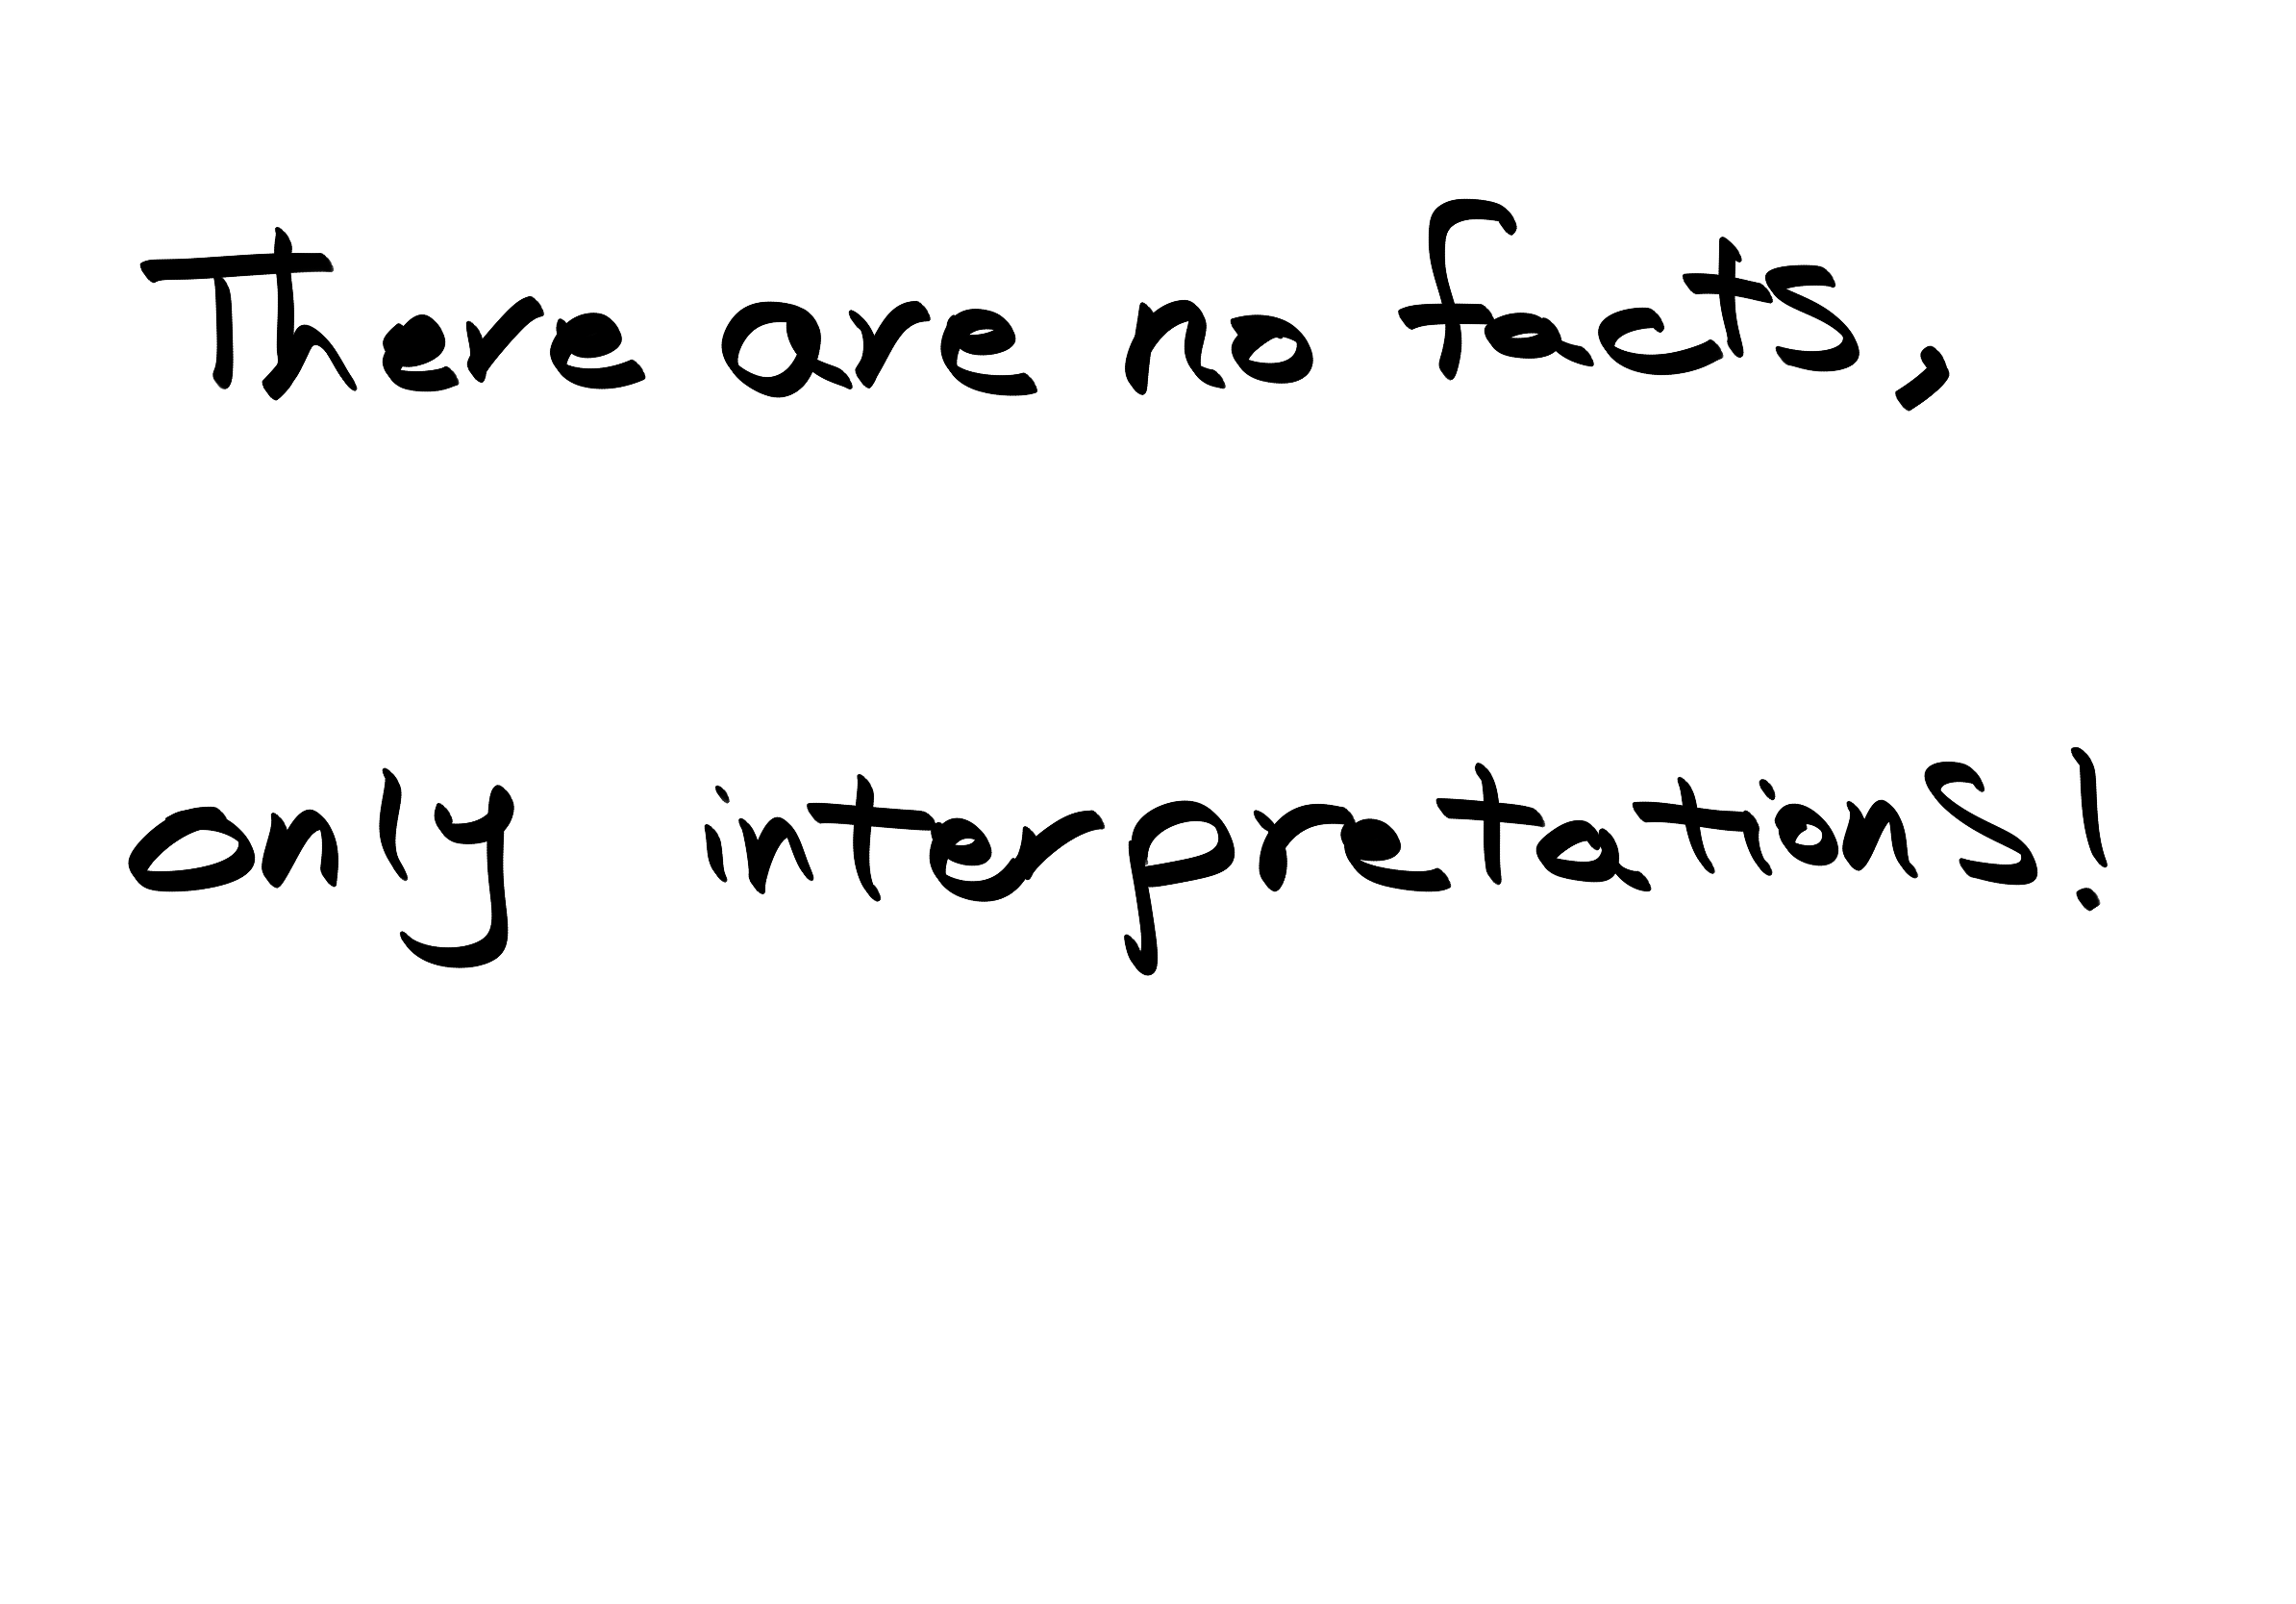 There are no facts,
only interpretations!